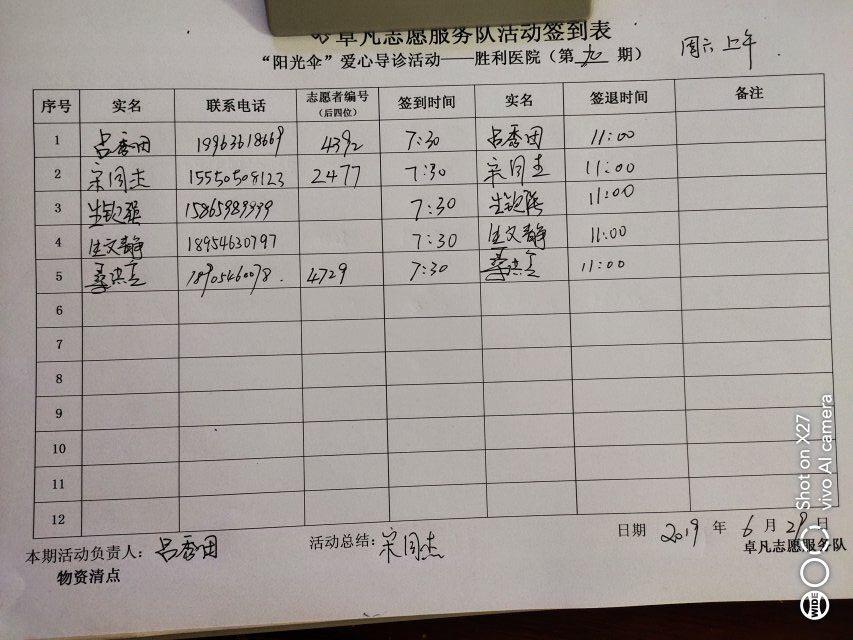 卓凡志愿服务队活动签到表
“阳光伞”爱心导诊活动——胜利医院（第 九 期） 周六上午
序号 实名 联系电话 志愿者编号（后四位） 签到时间 实名 签退时间 备注
1 吕秀田 19963618669 4392 7:30 吕秀田 11:00
2 宋同杰 15550508123 2477 7:30 宋同杰 11:00
3 15865989999 7:30 11:00
4 生文静 18954630797 7:30 生文静 11:00
5 18905460078. 4729 7:30 11:00
6
7
8
9
10
11
12
本期活动负责人：吕秀田 活动总结：宋同杰 日期 2019 年 6 月 29 日
物资清点 卓凡志愿服务队
Shot on X27
vivo AI camera
WIDE